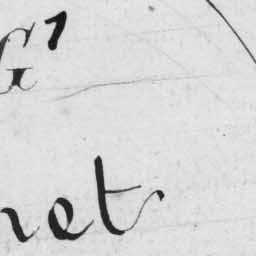 G'
net